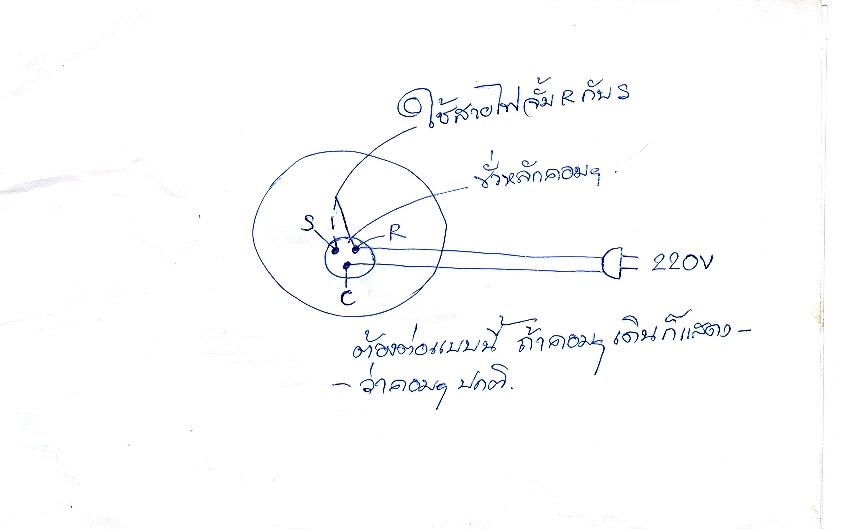 ใช้สายไฟจั้ม R กับ S
ขั้วหลักคอมฯ
S
R
C
220V
ต้องต่อแบบนี้ ถ้าคอมฯ เดินก็แสดง-
- ว่าคอมฯ ปกติ.